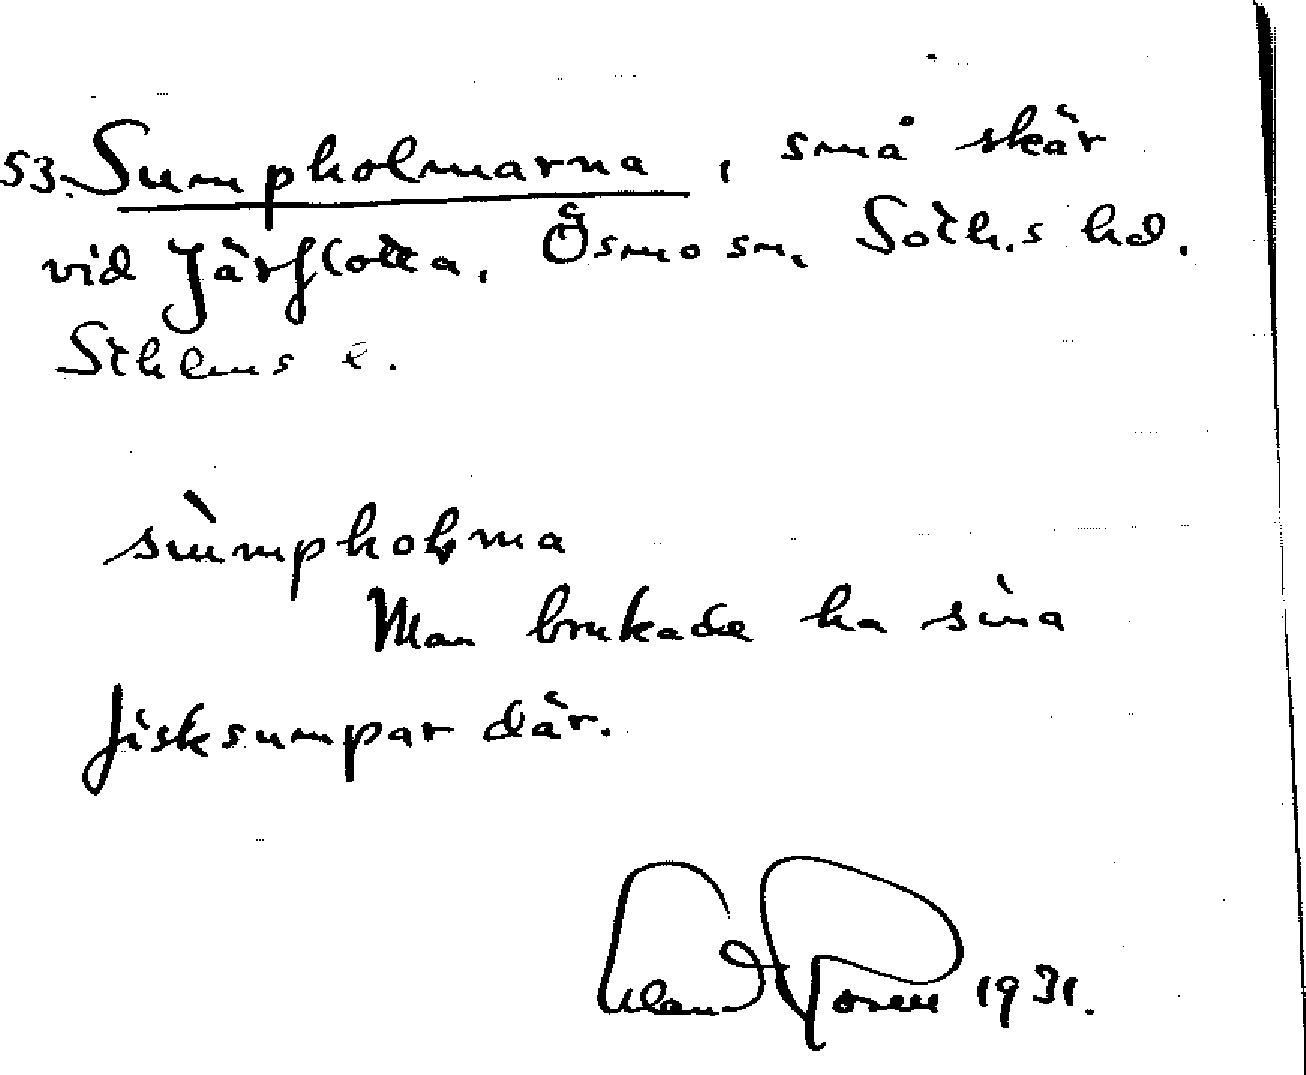 53. Sumpholmarna, små skär
vid Järflotta, Ösmo sn, Soth.s hd.
Sthlms l.
sùmpholma
Man brukade ha sina
fisksumpar där.
Rosén 1931.